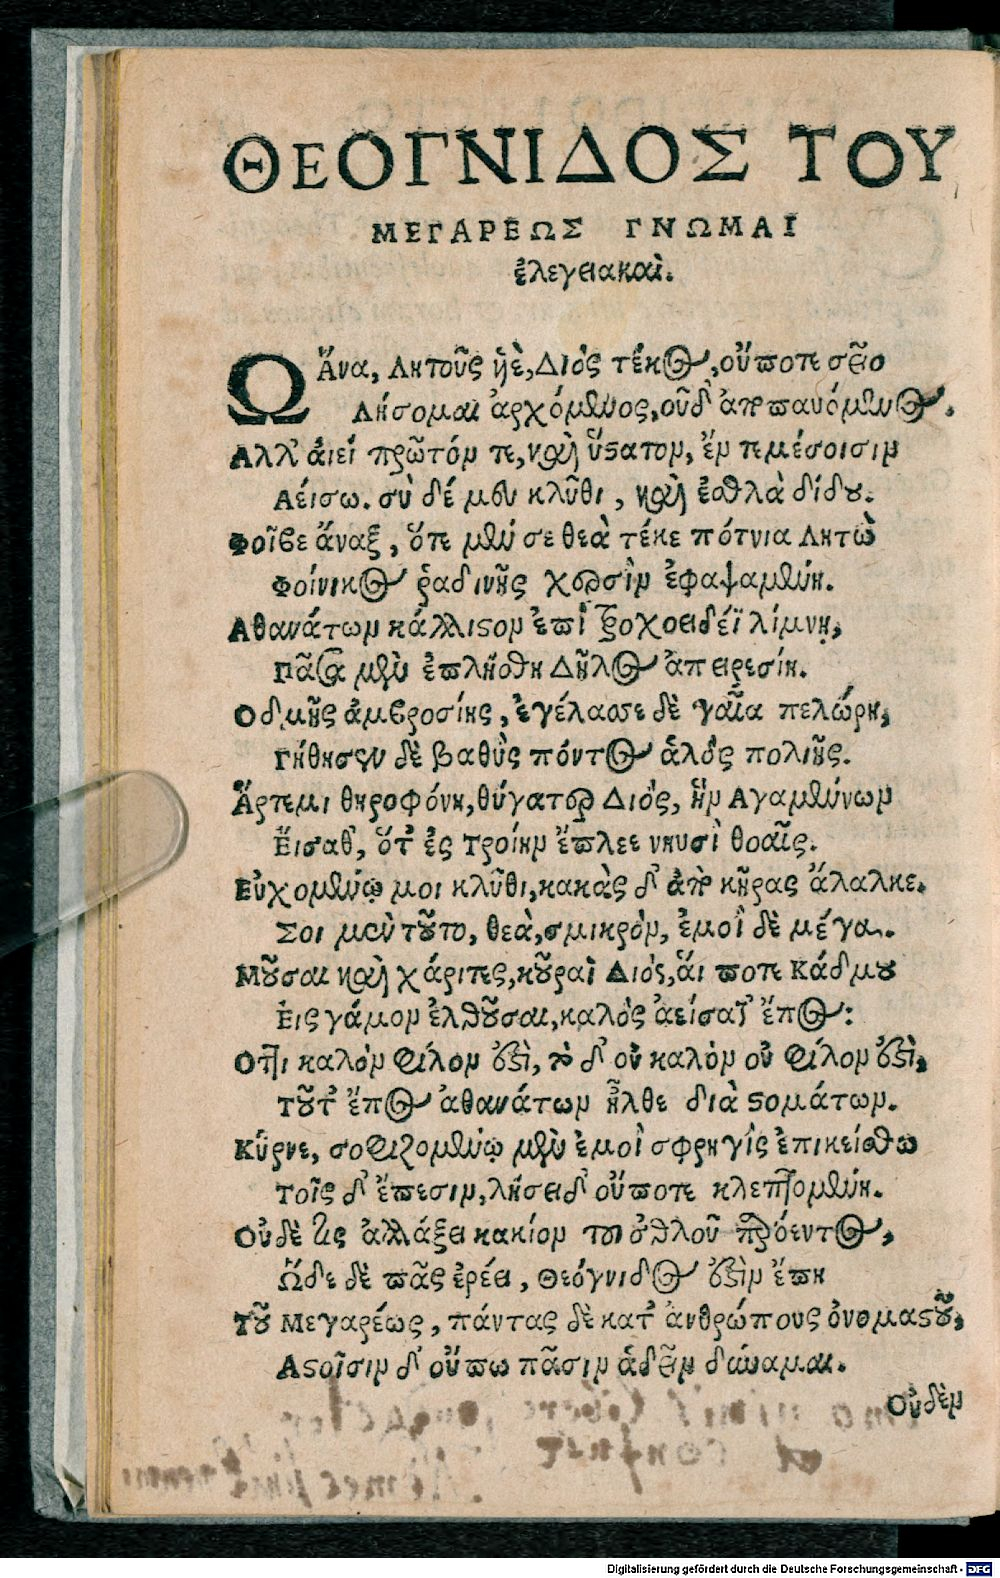 ΘΕΟΓΝΙΔΟΣ ΤΟΥ
ΜΕΓΑΡΕΩΣ ΓΝΩΜΑΙ
ἐλεγειακαὶ.
Ὦ Ἄνα, Λητοῦς ὑὲ, Διὸς τέκος, οὔποτε σεῖο
Λήσομαι ἀρχόμενος, οὐδ' ἀποπαυόμενος.
Αλλ' ἀιεὶ πρῶτόν τε, καὶ ὕϛατον, ἔν τε μέσοισιν
Αείσω. σὺ δέ μευ κλῦθι, καὶ ἐσθλὰ δίδου.
Φοῖβε ἄναξ, ὅτε μέν σε θεὰ τέκε πότνια Λητὼ
Φοίνικος ῥαδινῆς χερσὶν ἐφαψαμένη.
Αθανάτων κάλλιϛον ἐπὶ τροχοειδέϊ λίμνῃ,
Πᾶσα μὲν ἐπλήσθη Δῆλος ἀπειρεσίη.
Οδμῆς ἀμβροσίης, ἐγέλασσε δὲ γαῖα πελώρη,
Γήθησεν δὲ βαθὺς πόντος ἁλὸς πολιῆς.
Ἄρτεμι θηροφόνη, θύγατερ Διὸς, ἣν Αγαμέμνων
Ἔισαθ', ὅτ' ἐς Τροίην ἔπλεε νηυσὶ θοαῖς.
Εὐχομένῳ μοι κλῦθι, κακὰς δ' ἀπὸ κῆρας ἄλαλκε.
Σοι μὲν τοῦτο, θεὰ, σμικρὸν, ἐμοὶ δὲ μέγα.
Μοῦσαι καὶ χάριτες, κοῦραὶ Διὸς, ἅι ποτε Κάδμου
Ἐις γάμον ἐλθοῦσαι, καλὸς ἀείσατ' ἔπος:
Οτ̔τι καλὸν φίλον ἐϛὶ, τὸ δ' οὐ καλὸν οὐ φίλον ἐϛὶ,
Τοῦτ' ἔπος ἀθανάτων ἦλθε διὰ ϛομάτων.
Κύρνε, σοφιζομένῳ μὲν ἐμοὶ σφρηγὶς ἐπικείσθω
Τοῖς δ' ἔπεσιν, λήσει δ' οὔποτε κλεπτομένη.
Οὐδὲ τις ἀλλάξει κακίον τοι σθλοῦ παρόεντος,
Ὧδε δὲ πᾶς ἐρέει, Θεόγνιδος ἐϛὶν ἔπη
Τοῦ Μεγαρέως, πάντας δὲ κατ' ἀνθρώπους ὀνομαϛοῦ,
Αϛοῖσιν δ' οὔπω πᾶσιν ἁδεῖν δύναμαι.
Οὐδὲν
Digitalisierung gefördert durch die Deutsche Forschungsgemeinschaft - DFG